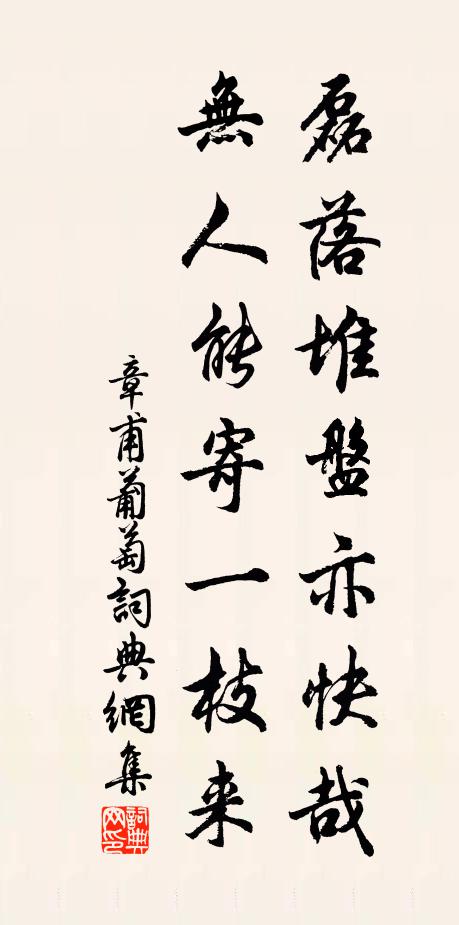 磊落堆盤亦快哉
無人能寄一枝来
章甫葡萄詞典網集
詞典網印